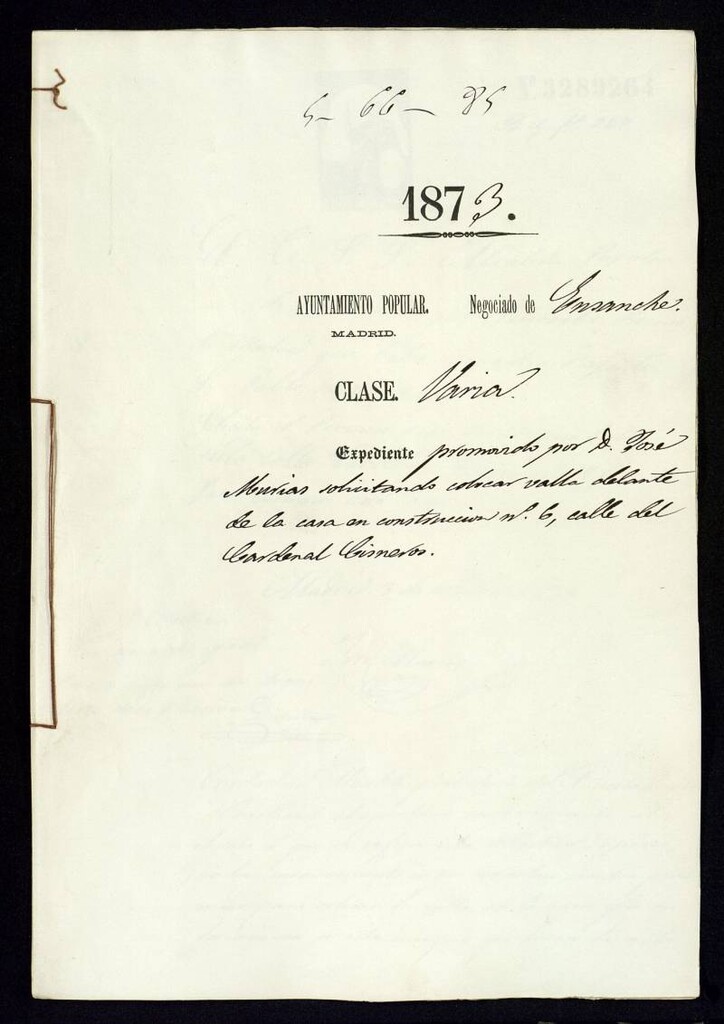 5- 66 - 85
1873.
AYUNTAMIENTO POPULAR. Negociado de Ensanche.
MADRID.
CLASE. Varia.
Expediente promovido por D. José
Murias solicitando colocar valla delante
de la casa en construccion nº. 6, calle del
Cardenal Cisneros.